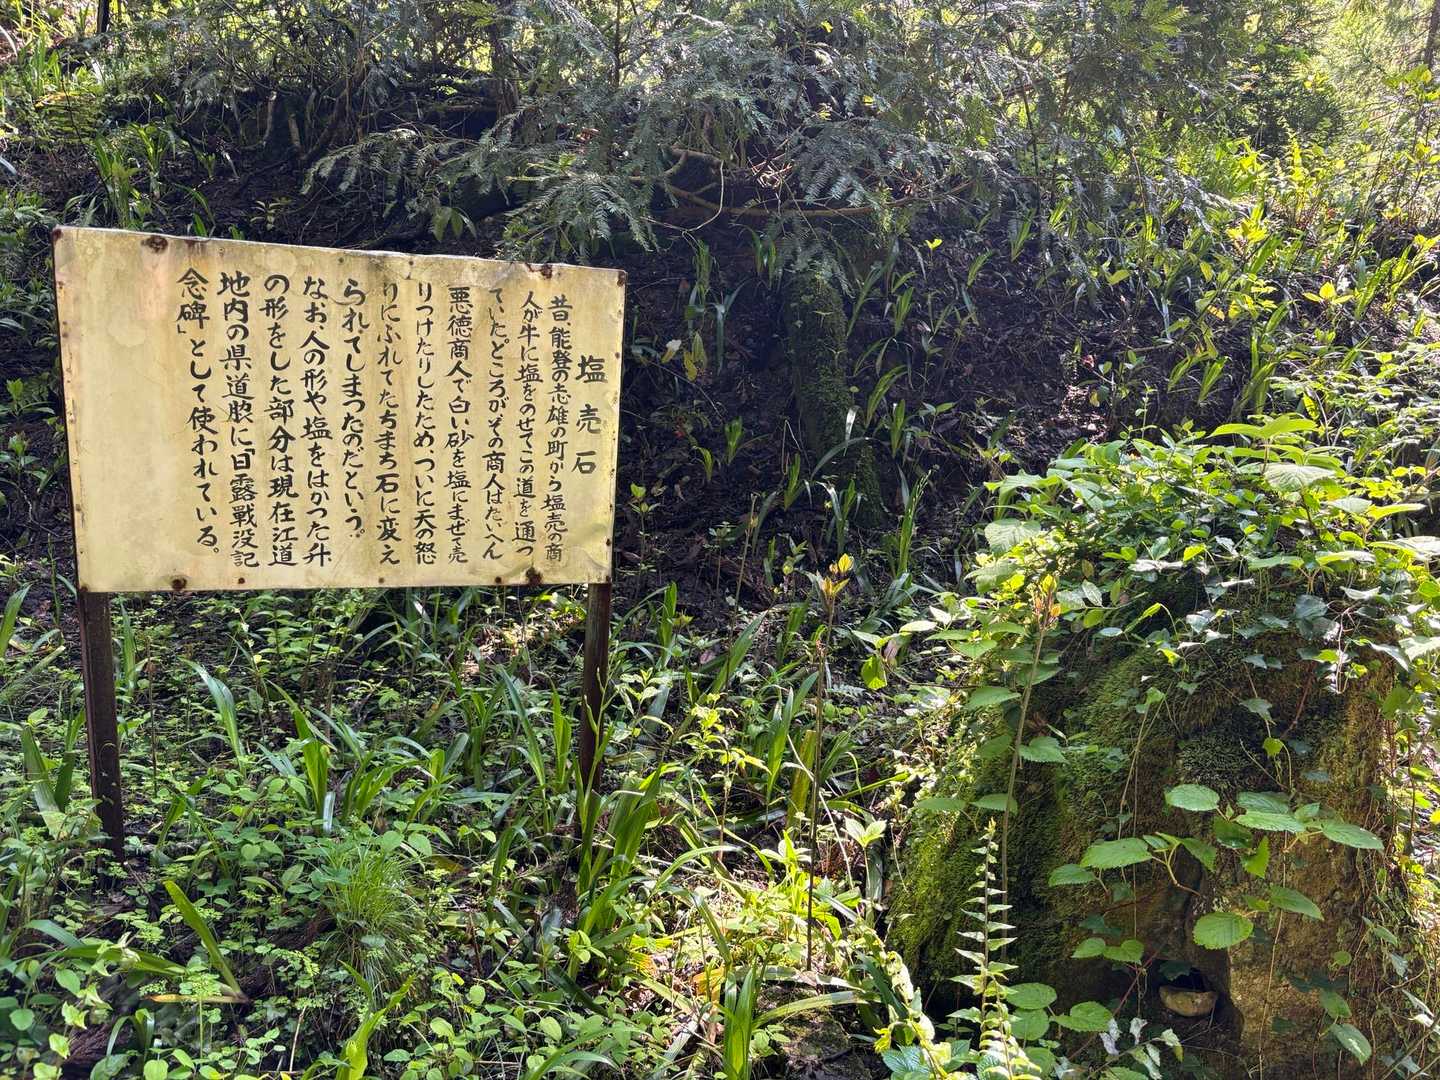 塩売石
昔、能登の志雄の町から塩売の商
人が牛に塩をのせてこの道を通つ
ていた。ところがその商人はたいへん
悪徳商人で白い砂を塩にまぜて売
りつけたりしたため、ついに天の怒
りにふれてたちまち石に変え
られてしまつたのだという。
なお、人の形や塩をはかつた升
の形をした部分は現在江道
地内の県道脇に「日露戦没記
念碑」として使われている。